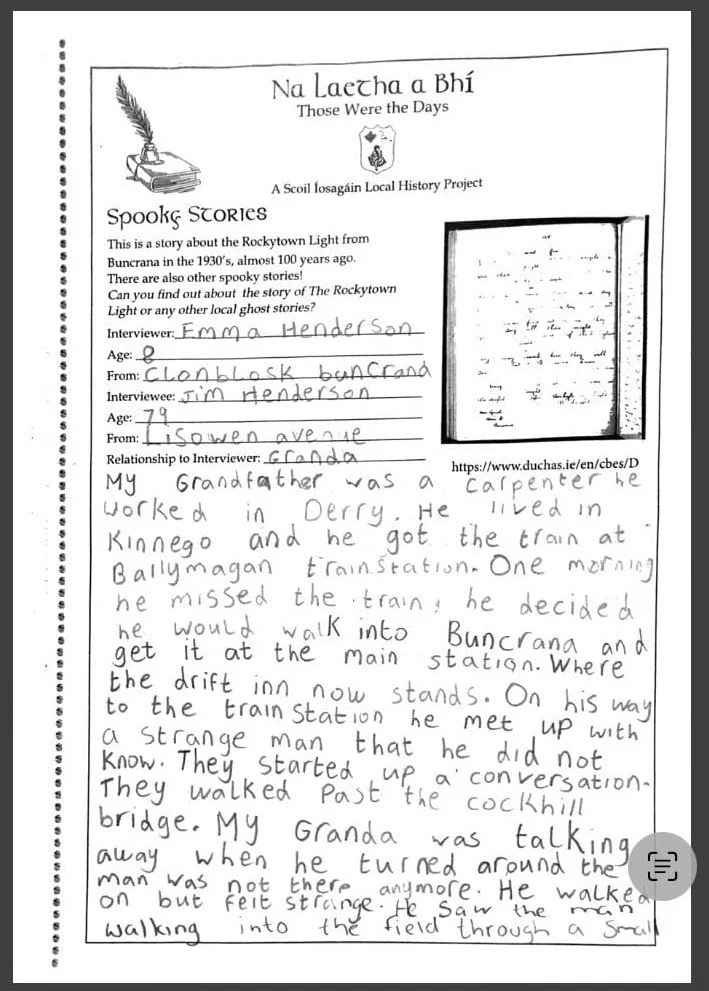 Na Laetha a Bhí
Those Were the Days
A Scoil Íosagáin Local History Project
Spooky Stories
This is a story about the Rockytown Light from
Buncrana in the 1930's, almost 100 years ago.
There are also other spooky stories!
Can you find out about the story of The Rockytown
Light or any other local ghost stories?
Interviewer: Emma Henderson
Age: 8
From: Clonblosk buncrana
Interviewee: Jim Henderson
Age: 79
From: Lisowen avenue
Relationship to Interviewer: Granda
https://www.duchas.ie/en/cbes/D
My Grandfather was a carpenter he
worked in Derry. He lived in
Kinnego and he got the train at
Ballymagan trainstation. One morning
he missed the train, he decided
he would walk into Buncrana and
get it at the main station. Where
the drift inn now stands. On his way
to the train station he met up with
a strange man that he did not
know. They started up a conversation.
They walked past the cockhill
bridge. My Granda was talking
away when he turned around the
man was not there anymore. He walked
on but felt strange. He saw the man
walking into the field through a small